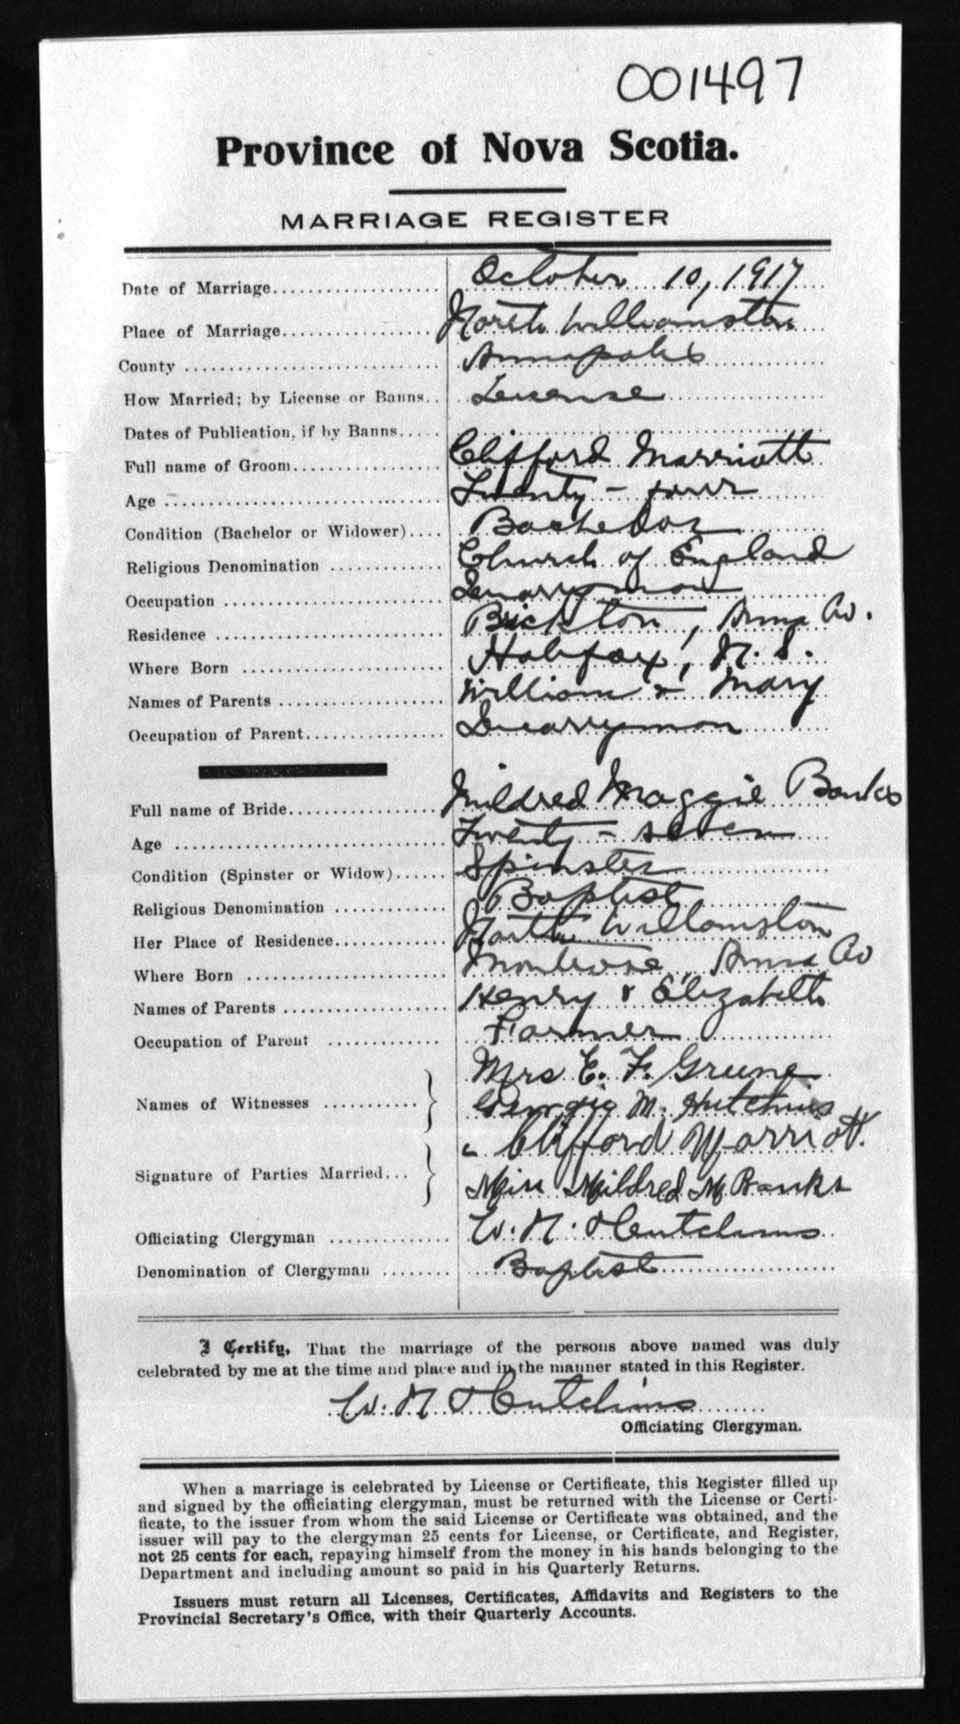 001497
Province of Nova Scotia.
MARRIAGE REGISTER
Date of Marriage October 10, 1917
Place of Marriage North Williamston
County Annapolis
How Married; by License or Banns License
Dates of Publication, if by Banns
Full name of Groom Clifford Marriott
Age Twenty-four
Condition (Bachelor or Widower) Bachelor
Religious Denomination Church of England
Occupation Quarryman
Residence Brickton, Anna Co.
Where Born Halifax, N. S.
Names of Parents William & Mary
Occupation of Parent Quarryman
Full name of Bride Mildred Maggie Banks
Age Twenty-seven
Condition (Spinster or Widow) Spinster
Religious Denomination Baptist
Her Place of Residence North Williamston
Where Born Anna Co
Names of Parents Henry & Elizabeth
Occupation of Parent Farmer
Names of Witnesses Mrs E. F.
M. Hutchins
Signature of Parties Married Clifford Marriott.
Miss Mildred M Banks
Officiating Clergyman W. N. Hutchins
Denomination of Clergyman Baptist
I Certify, That the marriage of the persons above named was duly
celebrated by me at the time and place and in the manner stated in this Register.
W. N Hutchins
Officiating Clergyman.
When a marriage is celebrated by License or Certificate, this Register filled up
and signed by the officiating clergyman, must be returned with the License or Certi-
ficate, to the issuer from whom the said License or Certificate was obtained, and the
issuer will pay to the clergyman 25 cents for License, or Certificate, and Register,
not 25 cents for each, repaying himself from the money in his hands belonging to the
Department and including amount so paid in his Quarterly Returns.
Issuers must return all Licenses, Certificates, Affidavits and Registers to the
Provincial Secretary's Office, with their Quarterly Accounts.